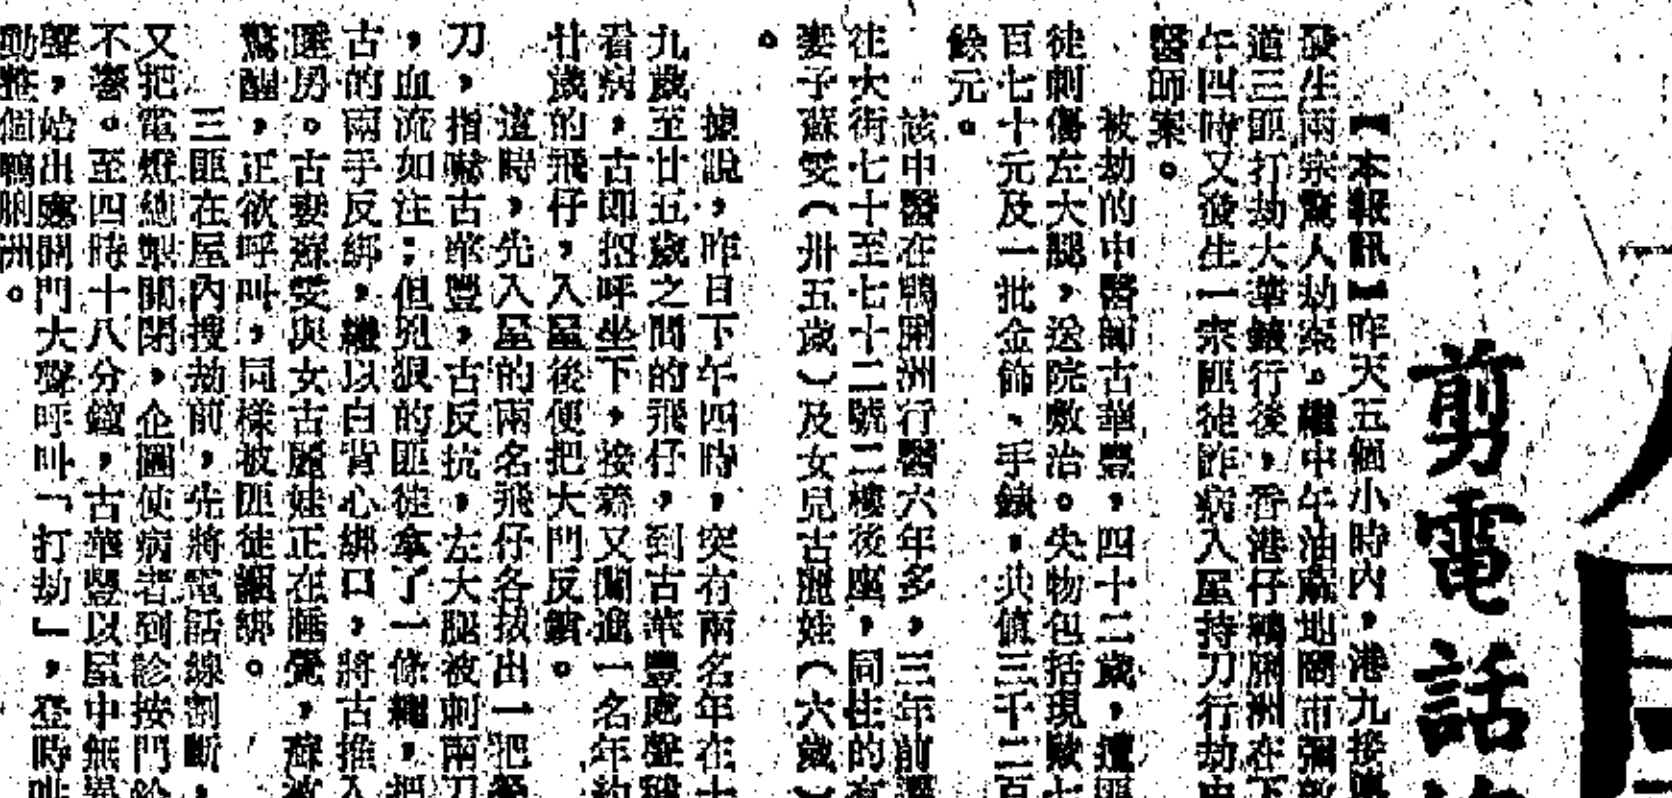 剪電話
【本報訊】昨天五個小時內，港九接
發生兩宗驚人劫案。繼中午油麻地鬧市彌敦
道三匪打劫大華銀行後，香港仔鴨脷洲在下
午四時又發生一宗匪徒詐病入屋持刀行劫中
醫師案。
被劫的中醫師古華豐，四十二歲，遭匪
徒刺傷左大腿，送院敷治。失物包括現款七
百七十元及一批金飾、手錶，共值三千二百
餘元。
該中醫在鴨脷洲行醫六年多，三年前遷
往大街七十至七十二號二樓後座，同住的有
妻子蘇雯（卅五歲）及女兒古麗娃（六歲）
。
據說，昨日下午四時，突有兩名年在十
九歲至廿五歲之間的飛仔，到古華豐處聲稱
看病，古即招呼坐下，接着又闖進一名年約
廿歲的飛仔，入屋後便把大門反鎖。
這時，先入屋的兩名飛仔各拔出一把
刀，指嚇古華豐，古反抗，左大腿被刺兩刀
，血流如注；但兇狠的匪徒拿了一條繩，把
古的兩手反綁，繼以白背心綁口，將古推入
睡房。古妻蘇雯與女古麗娃正在睡覺，蘇被
驚醒，正欲呼叫，同樣被匪徒綑綁。
三匪在屋內搜劫前，先將電話線割斷，
又把電燈總掣關閉，企圖使病者到診按門鈴
不響。至四時十八分鐘，古華豐以屋中無異
聲，始出應開門大聲呼叫「打劫」，登時哄
動整個鴨脷洲。